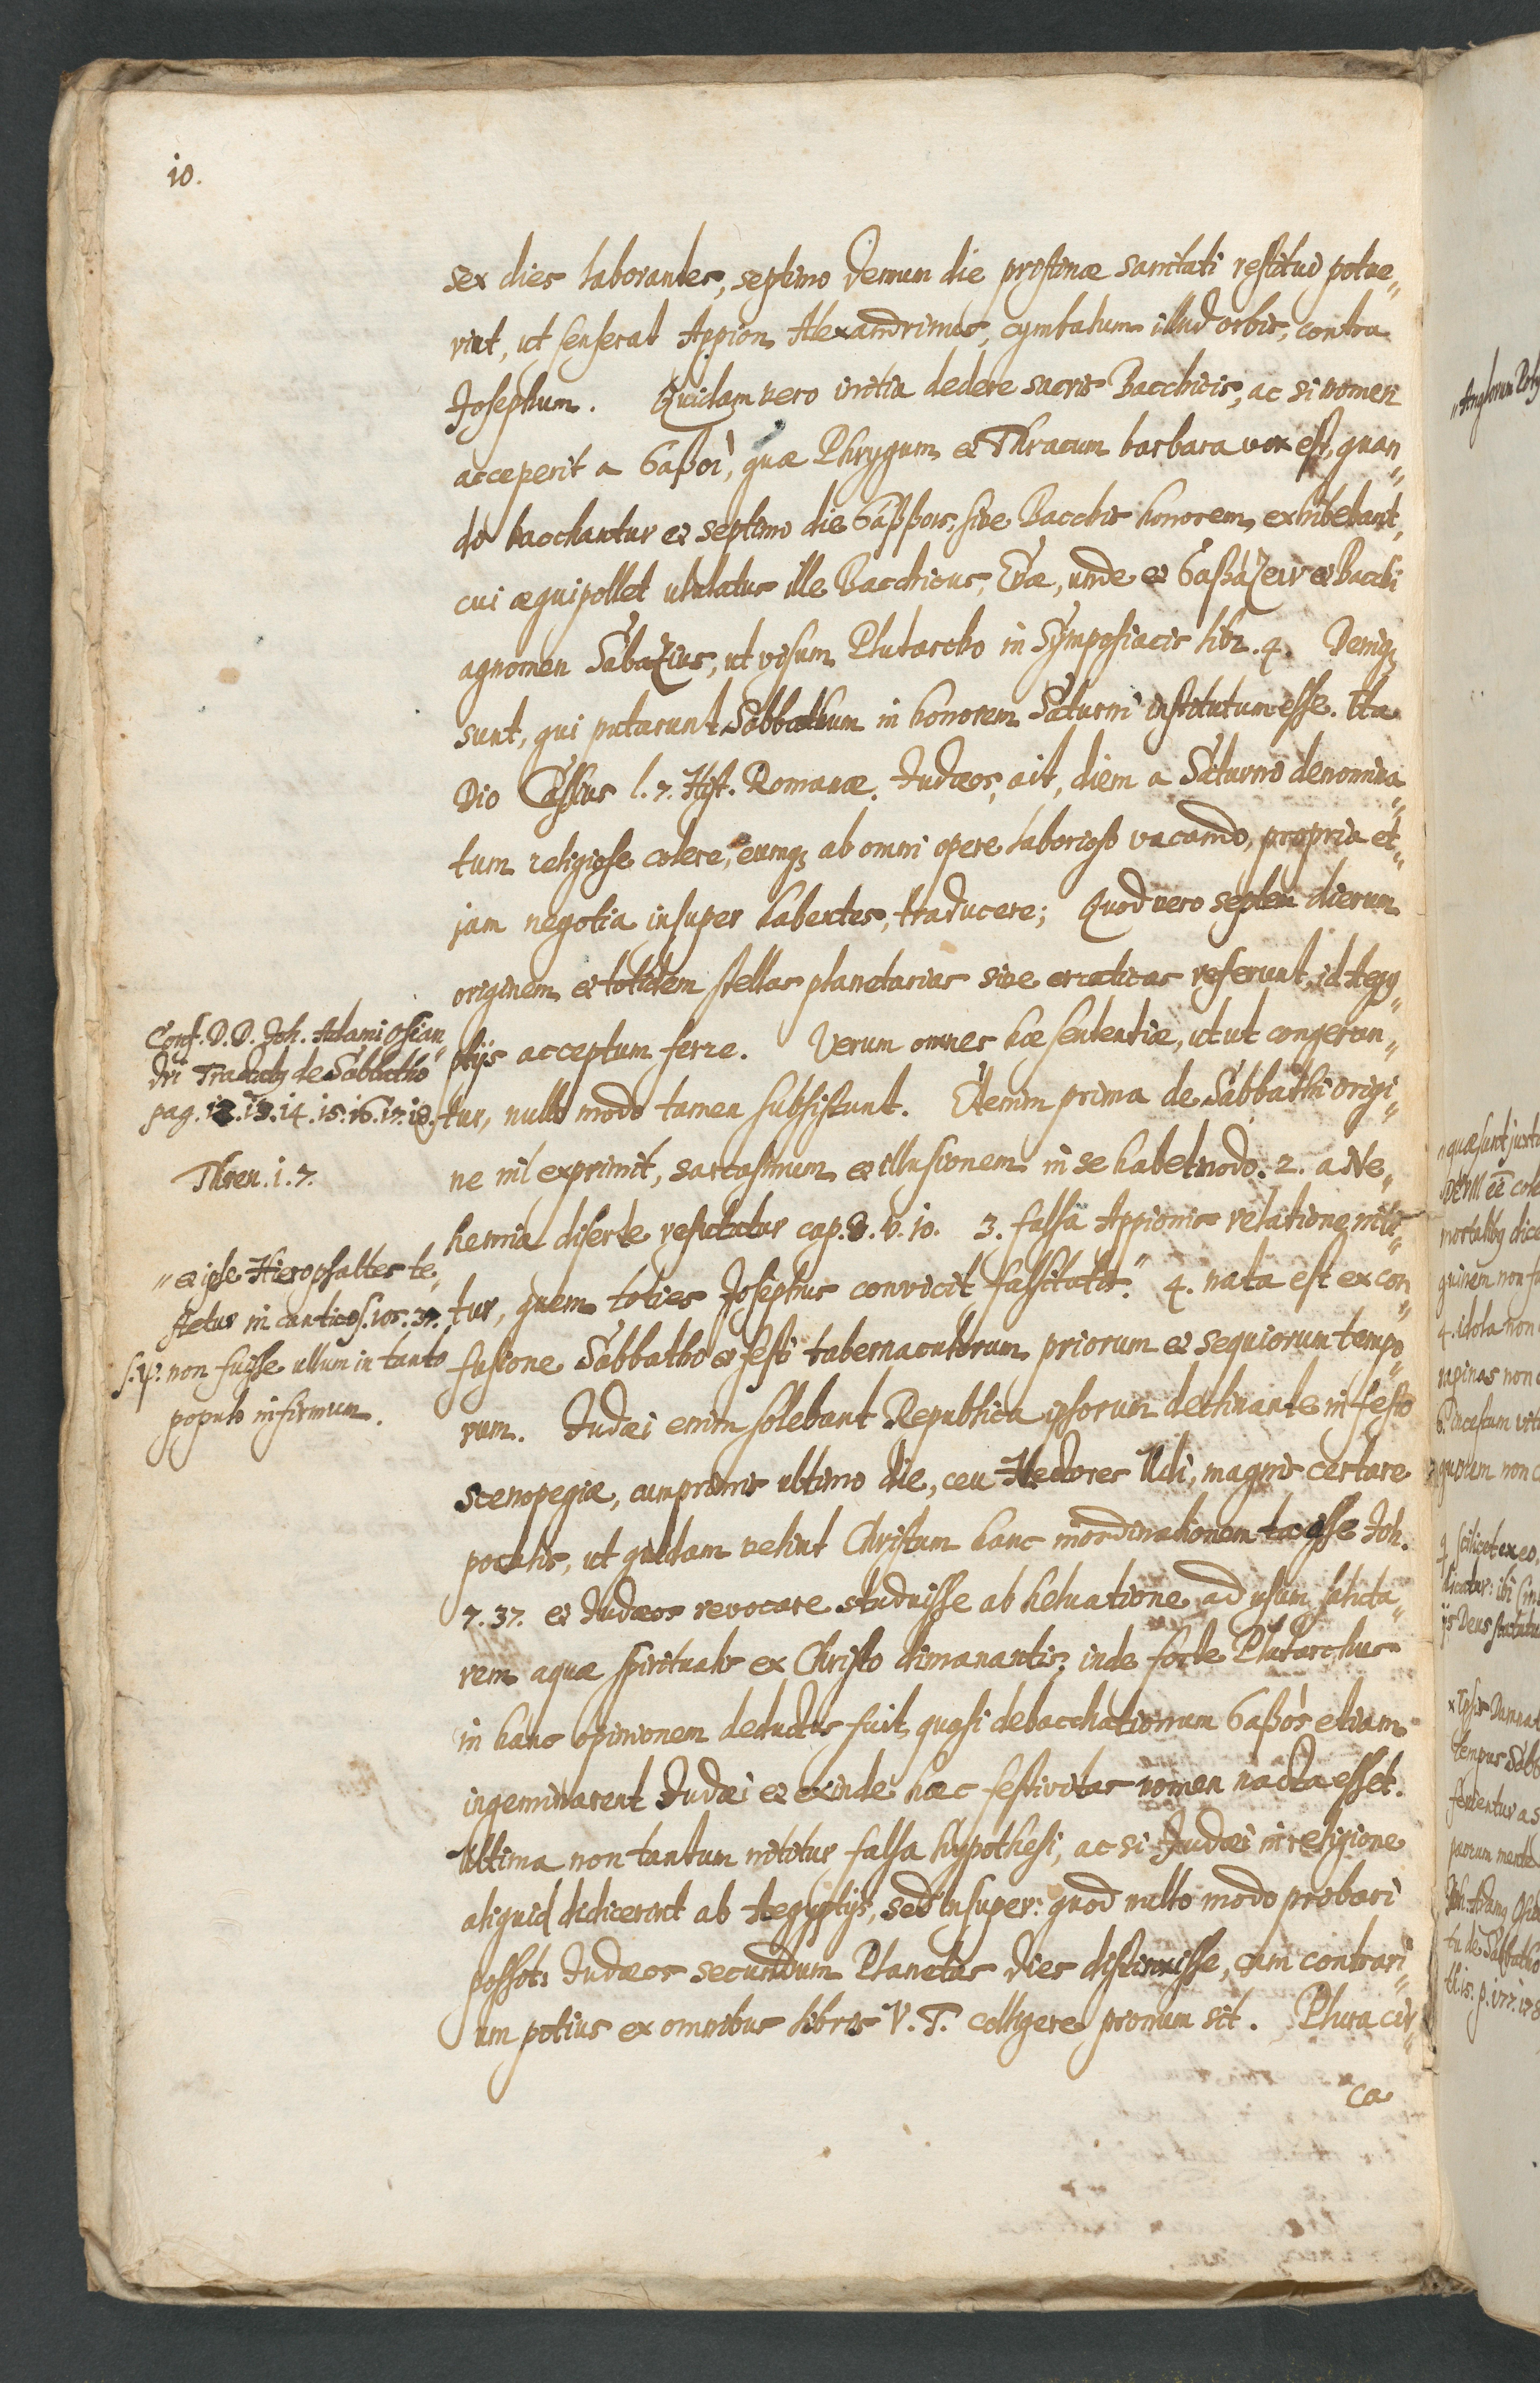 10.
sex dies laborantes, septimo demum die pristinæ sanitati restitui potue„
rint, ut senserat Appion Alexandrinus, cymbalum illud orbis, contra
Josephum. Quidam vero initia dedere sacris Bacchicis, ac si nomen
acceperit a ϭαβοῖ, quæ Phrygum et Thracum barbara vox est, quan„
do bacchantur et septimo die ϭάββοις, sive Bacchis honorem exhibebant,
cui æquipollet ululatus ille Bacchicus, Evæ, unde et ϭαβάζειν et Bacchi
agnomen Sabazius, ut visum Plutarcho in Symposiacis libr. 4. Deniq;
sunt, qui putarunt Sabbathum in honorem Saturni institutum esse. Ita
Dio Cassius l. 7. Hist. Romanæ. Judæos, ait, diem a Saturno denomina„
tum religiose colere, eumq; ab omni opere laborioso vacando, propria et„
jam negotia insuper habentes, traducere; Quod vero septem dierum
originem et totidem stellas planetarias sive erraticas referunt, id Aegy„
ptijs acceptum ferre. Verum omnes hæ sententiæ, ut ut congeran„
tur, nullo modo tamen subsistunt. Etenim prima de Sabbathi origi„
ne nil exprimit, sarcasmum et illusionem in se habet modo. 2. a Ne„
hemia diserte refutatur cap. 8. v. 10. 3. falsa Appionis relatione niti„
tur, quem toties Josephus convicit falsitatis." 4. nata est ex con„
fusione Sabbatho et festi tabernaculorum priorum et sequiorum tempo„
rum. Judæi enim solebant Republica ipsorum declinante in festo
scenopegiæ, cumprimis ultimo die, ceu Hectores Udi, magnis certare
poculis, ut quidam velint Christum hanc inordinationem taxasse Joh.
7. 37. et Judæos revocare studuisse ab heluatione ad usum saluta„
rem aquæ spiritualis ex Christo dimanantis; inde forte Plutarchus
in hanc opinionem deductus fuit, quasi debacchationum ϭαβοὸς etiam
ingeminarent Judæi et exinde hæc festivitas nomen nacta esset.
Ultima non tantum nititur falsa hypothesi, ac si Judæi in religione
aliquid didicerint ab Aegyptijs, sed insuper: quod nullo modo probari
possot: Judæos secundum Planetas dies distinxisse, cum contrari„
um potius ex omnibus libris V. T. colligere pronum sit. Plura cir„
ca
Conf. D. D. Joh. Adami Osian„
dri Tractatq de Sabbatho
pag. 12. 13. 14. 15. 16. 17. 18.
Thren. 1. 7.
„ et ipse Hieropsaltes te„
stetur in cantico s. 105. 37.
s. ψ. non fuisse ullum in tanto
populo infirmum.